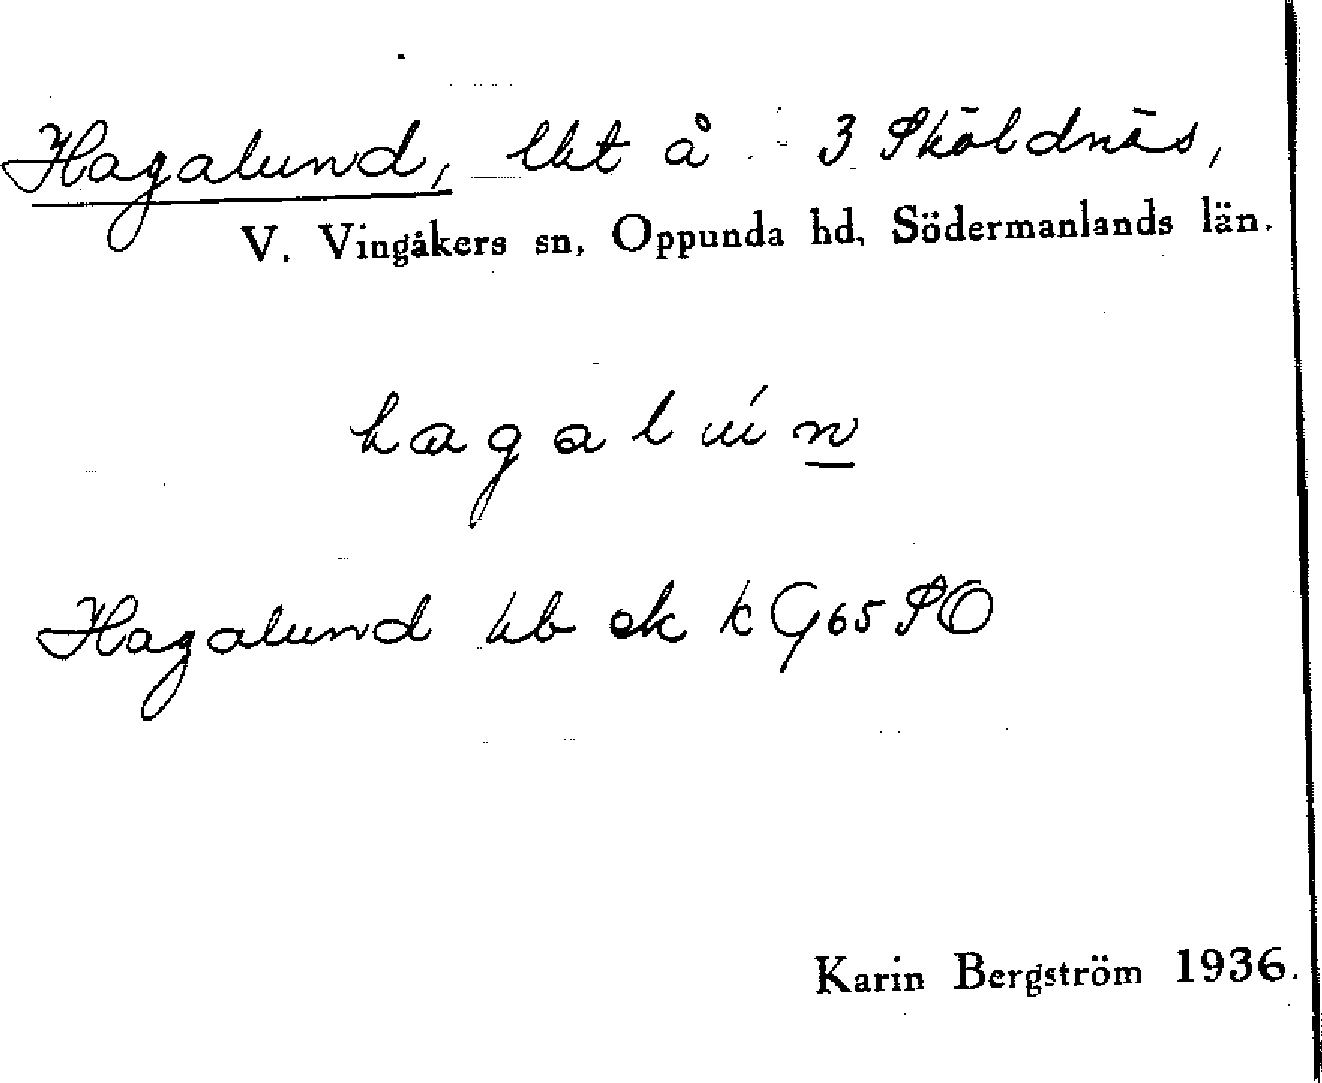 Hagalund, lht å 3 Sköldnäs,
V. Vingåkers sn, Oppunda hd, Södermanlands län.
hagalún
Hagalund hb ek kG65SO
Karin Bergström 1936.